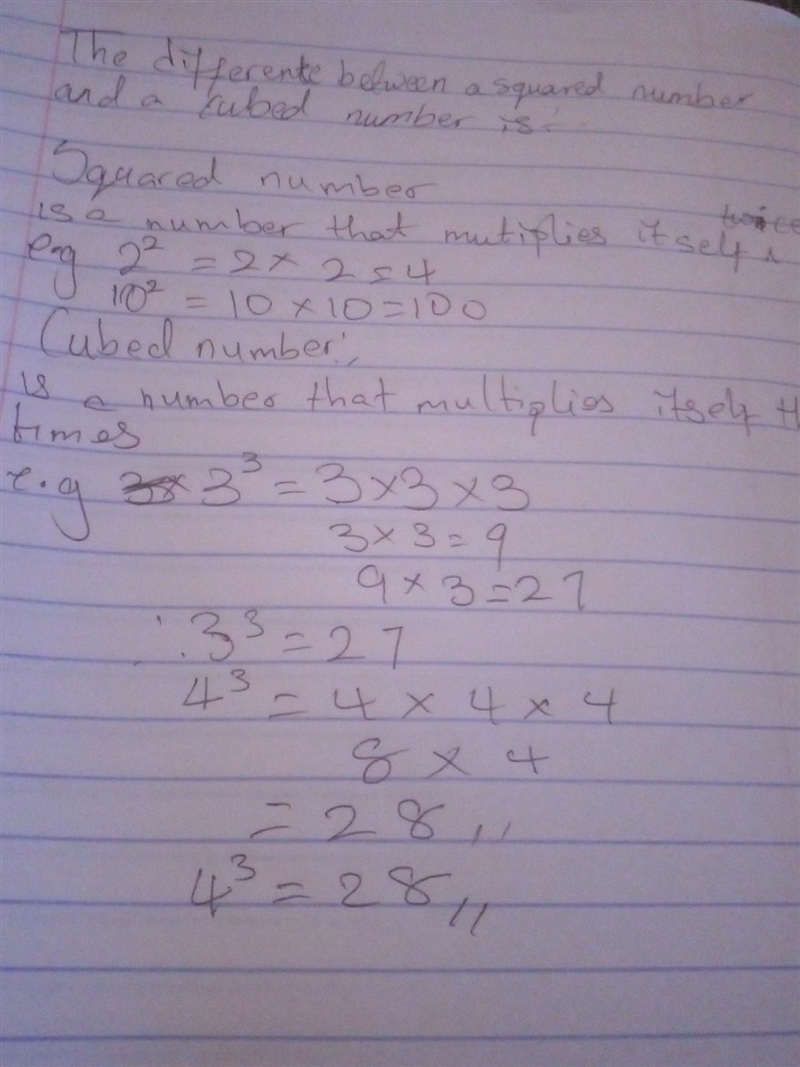 The differente between a squared number
and a cubed number is:
Squared number
is a number that mutiplies itself twice
e.g 2² = 2 × 2 = 4
10² = 10 × 10 = 100
Cubed number:
is a number that multiplies itself th
times
e.g 3³ = 3 × 3 × 3
3 × 3 = 9
9 × 3 = 27
∴ 3³ = 27
4³ = 4 × 4 × 4
8 × 4
= 28,,
4³ = 28,,